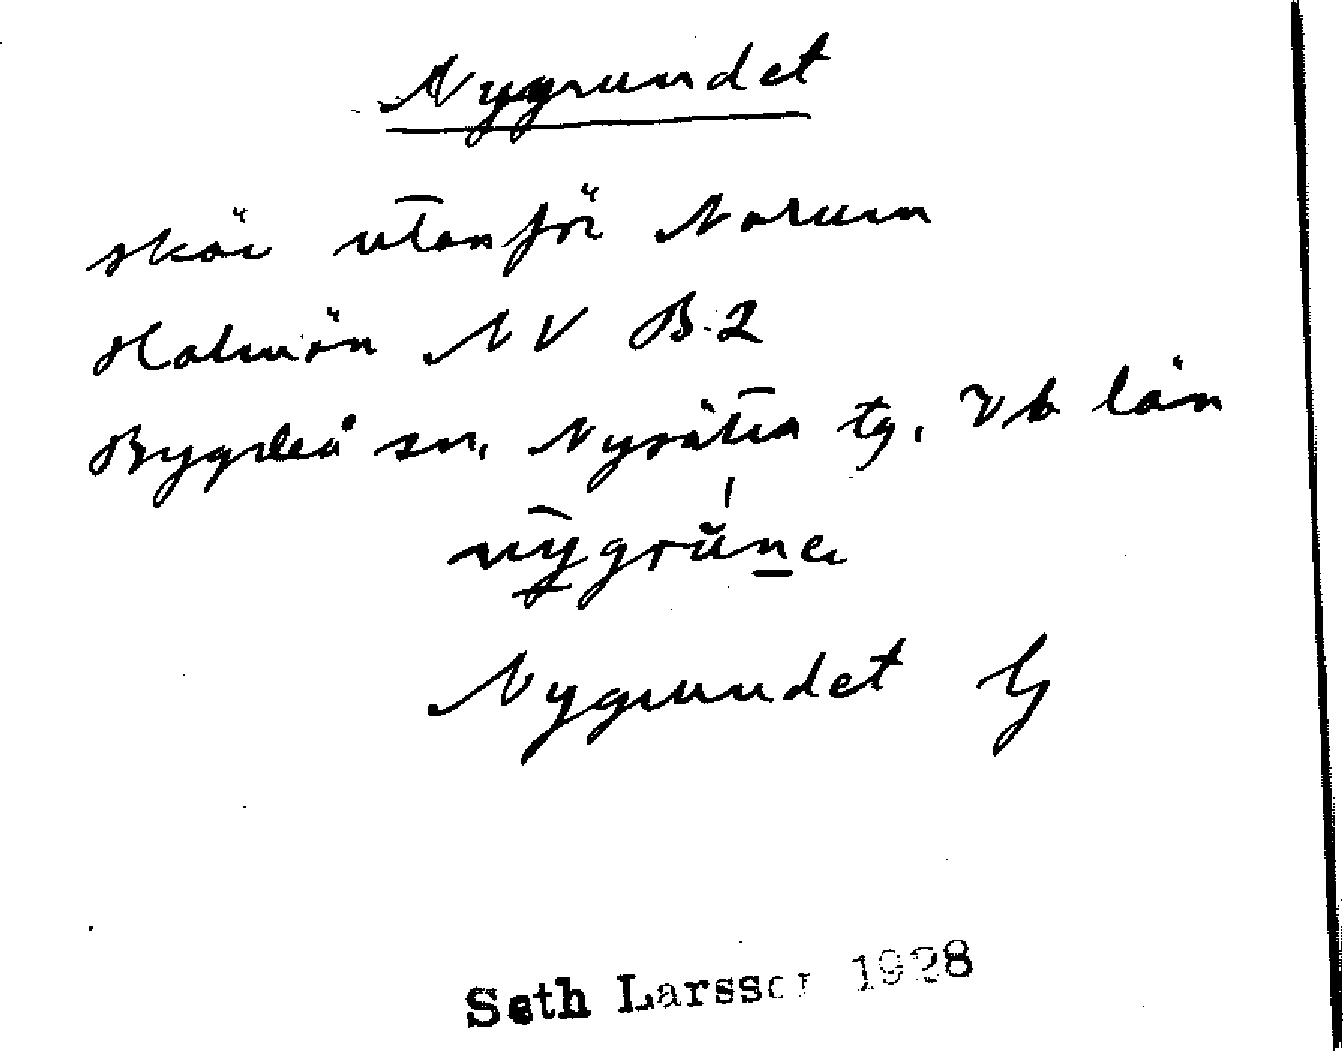 Nygrundet
skär utanför Norum
Holmön NV B.2
Bygdeå sn, Nysätra tg. Vb län
Nygrundet G
Seth Larsson 1928